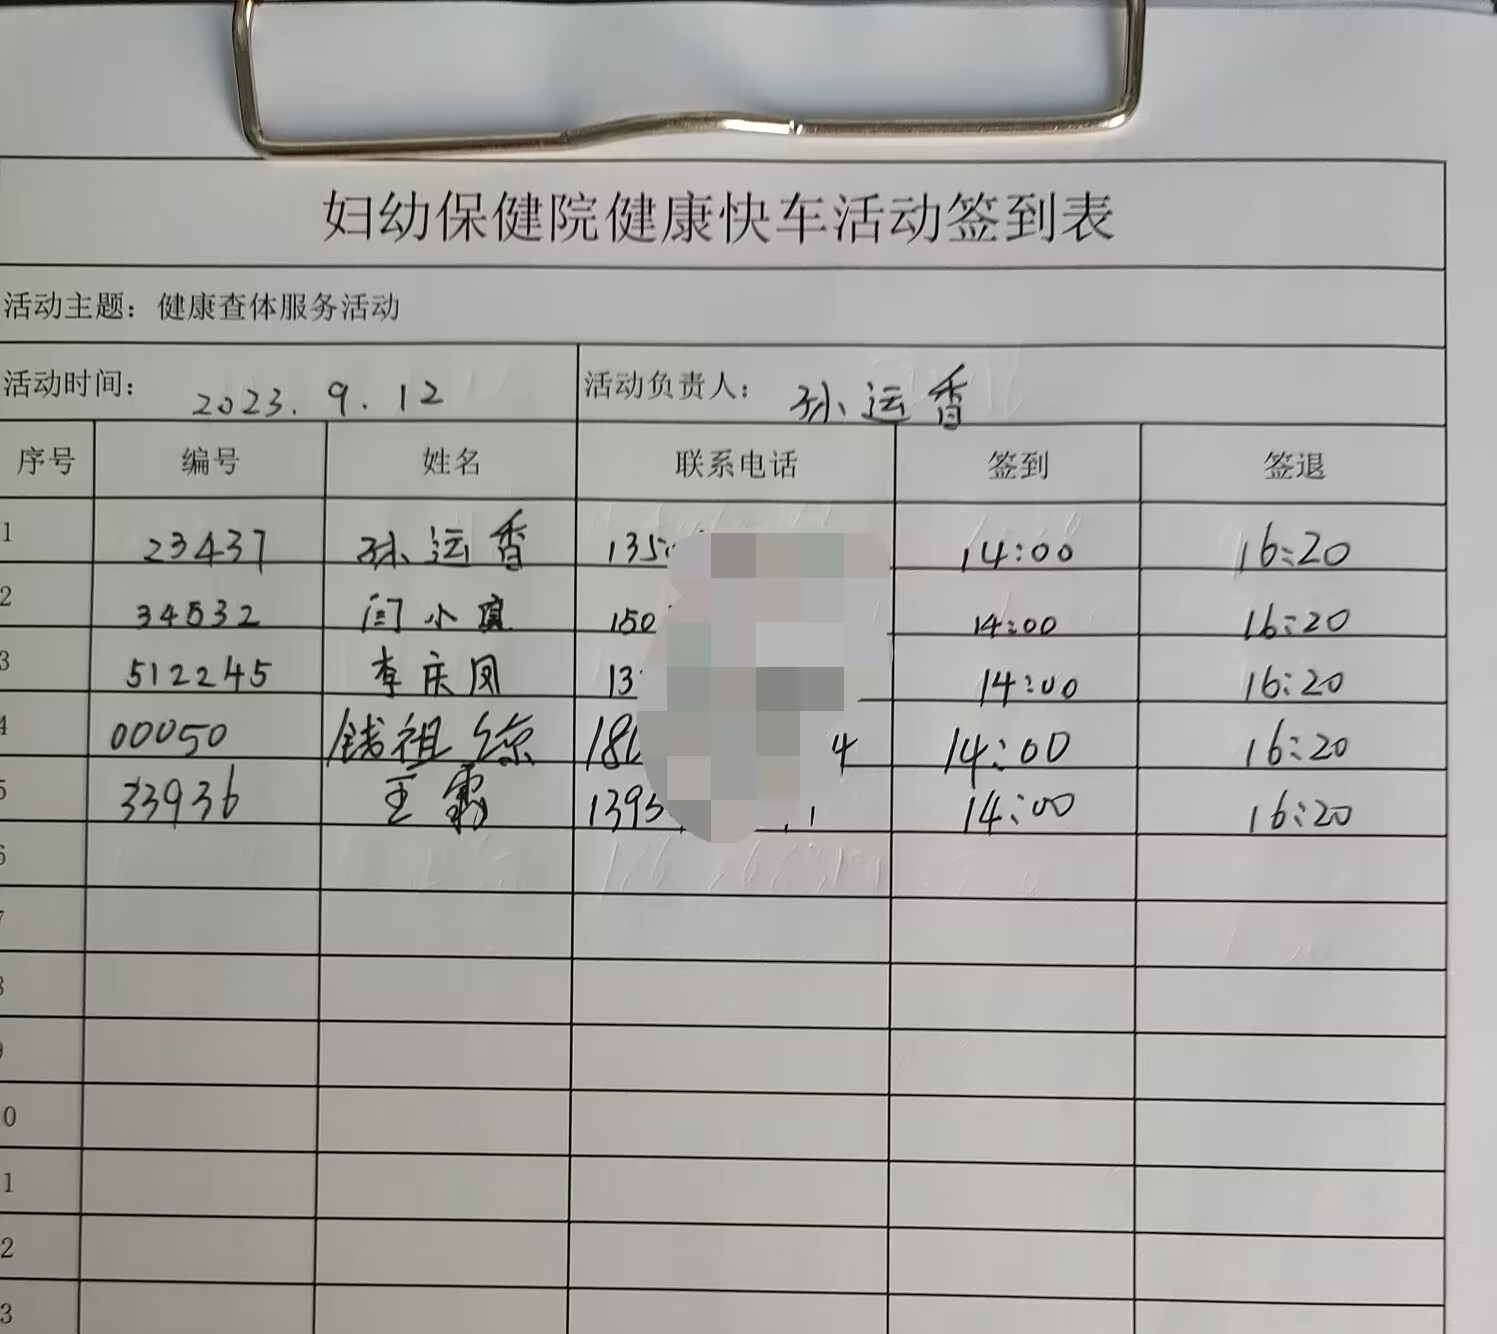 妇幼保健院健康快车活动签到表
活动主题：健康查体服务活动
活动时间： 2023.9.12 活动负责人： 孙运香
序号 编号 姓名 联系电话 签到 签退
1 23437 孙运香 135 14:00 16:20
2 34532 闫小 150 14:00 16:20
3 512245 李庆凤 13 14:00 16:20
4 00050 钱祖琼 18 4 14:00 16:20
5 33936 王霞 1395 14:00 16:20
6
7
8
9
0
1
2
3